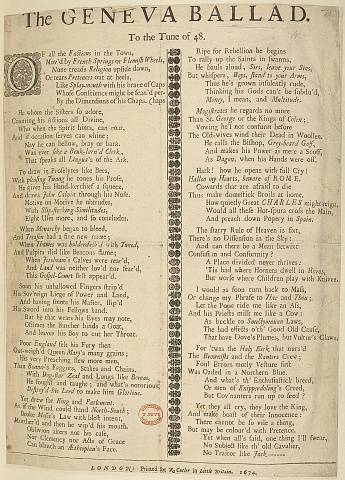 The GENEVA BALLAD.
To the Tune of 48.
OF all the Factions in the Town,
Mov'd by French Springs or Flemish Wheels,
None treads Religion upside down,
Or tears Pretences out at heels,
Like Splay-mouth with his brace of Caps
Whose Conscience might be scan'd per-
By the Dimensions of his Chaps. (haps
He whom the Sisters so adore,
Counting his Actions all Divine,
Who when the Spirit hints, can roar,
And if occasion serves can whine;
Nay he can bellow, bray or bark.
Was ever like a Beuk-larn'd Clerk,
That speaks all Lingua's of the Ark.
To draw in Proselytes like Bees,
With pleasing Twang he tones his Prose,
He gives his Hand-kerchief a squeez,
And draws John Calvin through his Nose.
Motive on Motive he obtrudes,
With Slip-stocking Similitudes,
Eight Uses more, and so concludes.
When Monarchy began to bleed,
And Treason had a fine new name;
When Thames was balderdash'd with Tweed,
And Pulpits did like Beacons flame;
When Jeroboam's Calves were rear'd,
And Laud was neither lov'd nor fear'd,
This Gospel-Comet first appear'd.
Soon his unhallowed Fingers strip'd
His Sov'reign Liege of Power and Land,
And having smote his Master, slip'd
His Sword into his Fellows hand.
But he that wears his Eyes may note,
Oftimes the Butcher binds a Goat,
And leaves his Boy to cut her Throat.
Poor England felt his Fury then
Out-weigh'd Queen Mary's many grains
His very Preaching slew more men,
Than Bonner's Faggots, Stakes and Chains.
With Dog-star Zeal and Lungs like Boreas,
He fought and taught; and what's notorious,
Destroy'd his Lord to make him Glorious.
Yet drew for King and Parliament,
As if the Wind could stand North-South;
Broke Moses's Law with blest intent,
Murther'd and then he wip'd his mouth.
Oblivion alters not his case,
Nor Clemency nor Acts of Grace
Can blanch an Æthiopian's Face.
Ripe for Rebellion he begins
To rally up the Saints in swarms,
He bauls aloud, Sirs, leave your Sins,
But whispers, Boys, stand to your Arms,
Thus he's grown insolently rude,
Thinking his Gods can't be subdu'd,
Money, I mean, and Multitude.
Magistrates he regards no more
Than St. George or the Kings of Colen;
Vowing he'l not conform before
The Old-wives wind their Dead in Woollen.
He calls the Bishop, Grey-hair'd Goff,
And makes his Power as mere a Scoff,
As Dagon, when his Hands were off.
Hark! how he opens with full Cry!
Hallow my Hearts, beware of ROME.
Cowards that are afraid to die
Thus make domestick Broils at home.
How quietly Great CHARLES might reign,
Would all these Hot-spurs cross the Main,
And preach down Popery in Spain.
The starry Rule of Heaven is fixt,
There's no Dissension in the Sky:
And can there be a Mean betwixt
Confusion and Conformity?
A Place divided never thrives:
'Tis bad where Hornets dwell in Hives,
But worse where Children play with Knives.
I would as soon turn back to Mass,
Or change my Phrase to Thee and Thou;
Let the Pope ride me like an Ass,
And his Priests milk me like a Cow;
As buckle to Smectymnuan Laws,
The bad effects o'th' Good Old Cause,
That have Dove's Plumes, but Vultur's Claws.
For 'twas the Holy Kirk, that nurs'd
The Brownists and the Ranters Crew;
Foul Errors motly Vesture first
Was Oaded in a Northern Blue.
And what's th' Enthusiastick breed,
Or men of Knipperdoling's Creed,
But Cov'nanters run up to seed?
Yet they all cry, they love the King,
And make boast of their Innocence:
There cannot be so vile a thing,
But may be colour'd with Pretence.
Yet when all's said, one thing I'll swear,
No Subject like th' old Cavalier,
No Traitor like Jack
LONDON: Printed for R. Cutler in Little Britain. 1674.